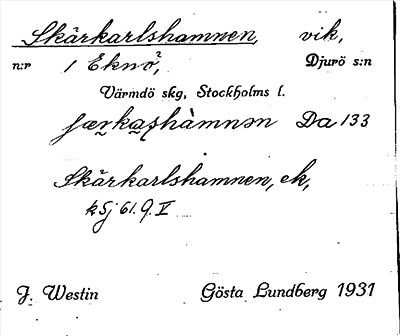 Skärkarlshamnen, vik,
n:r 1 Eknö, Djurö s:n
Värmdö skg, Stockholms l.
Da 133
Skärkarlshamnen, ek,
k Sj 61.9.V
J. Westin Gösta Lundberg 1931